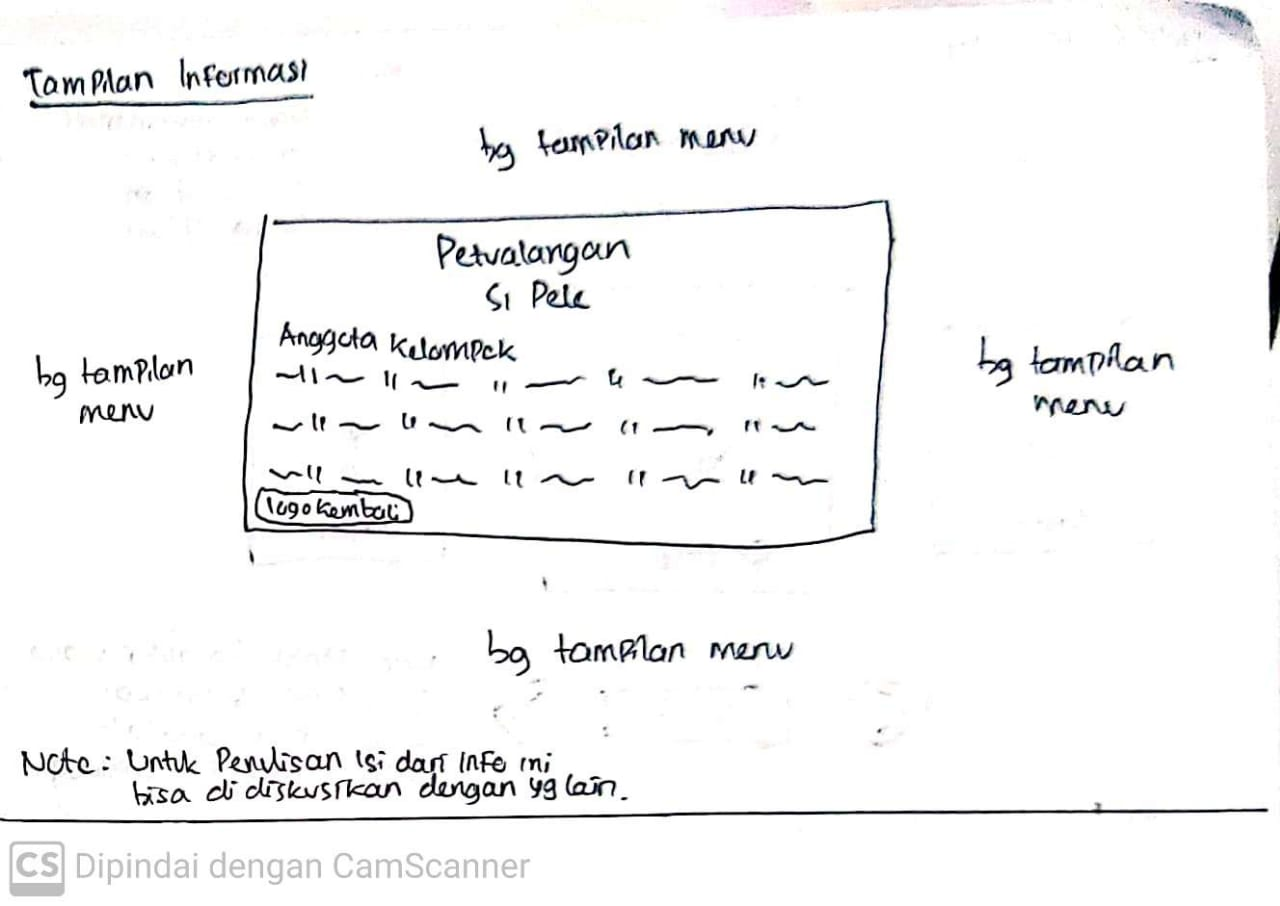 Tampilan Informasi
bg tampilan menu
Petualangan
Si Pele
Anggota Kelompok
bg tampilan
menu
bg tampilan
menu
logo kembali
bg tampilan menu
Note: Untuk Penulisan isi dari info ini
bisa di diskusikan dengan yg lain.
CS Dipindai dengan CamScanner